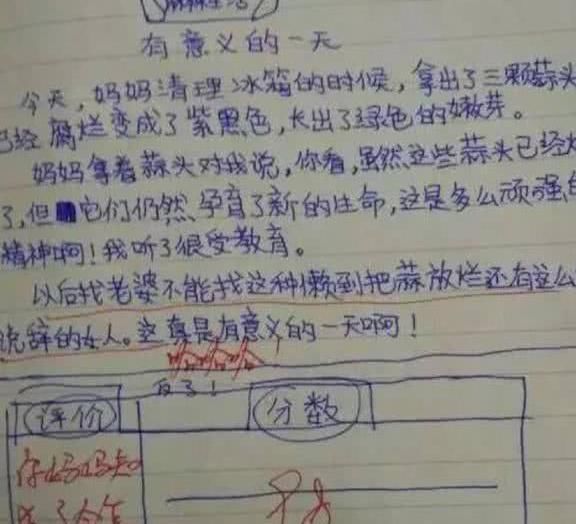 有意义的一天
今天,妈妈清理冰箱的时候,拿出了三颗蒜头
已经腐烂变成了紫黑色,长出了绿色的嫩芽。
妈妈拿着蒜头对我说,你看,虽然这些蒜头已经
了,但它们仍然孕育了新的生命,这是多么顽强
精神啊!我听了很受教育。
以后找老婆不能找这种懒到把蒜放烂还有这么
说辞的女人。这真是有意义的一天啊!
反了!
评价 分数
你妈妈知